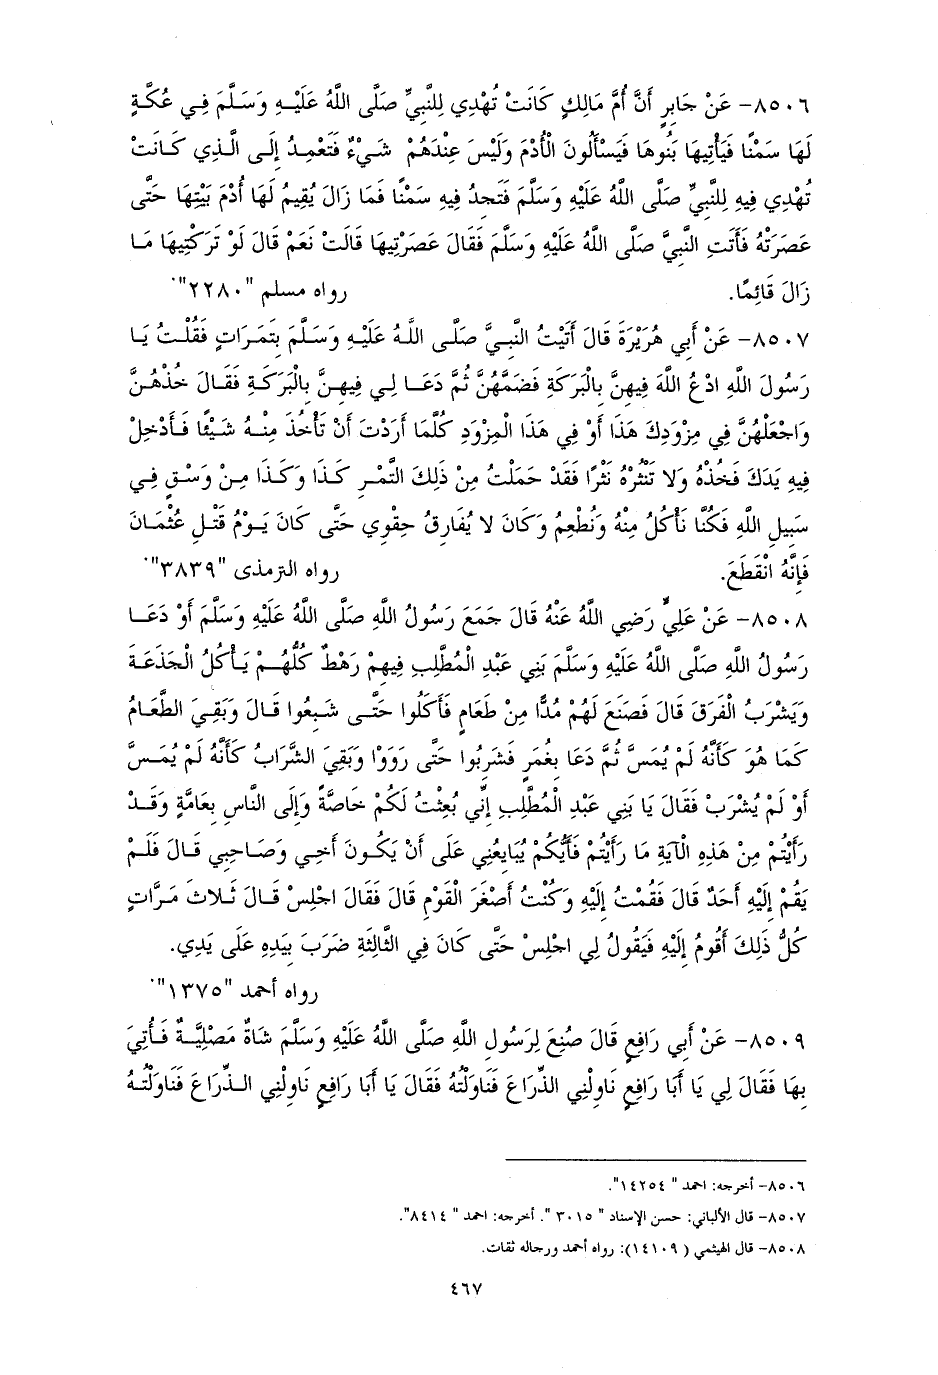 ٨٥٠٦- عَنْ جَابِرٍ أَنَّ أُمَّ مَالِكٍ كَانَتْ تُهْدِي لِلنَّبِيِّ صَلَّى اللَّهُ عَلَيْهِ وَسَلَّمَ فِي عُكَّةٍ
لَهَا سَمْنًا فَيَأْتِيهَا بَنُوهَا فَيَسْأَلُونَ الْأُدْمَ وَلَيْسَ عِنْدَهُمْ شَيْءٌ فَتَعْمِدُ إِلَى الَّذِي كَانَتْ
تُهْدِي فِيهِ لِلنَّبِيِّ صَلَّى اللَّهُ عَلَيْهِ وَسَلَّمَ فَتَجِدُ فِيهِ سَمْنًا فَمَا زَالَ يُقِيمُ لَهَا أُدْمَ بَيْتِهَا حَتَّى
عَصَرَتْهُ فَأَتَتِ النَّبِيَّ صَلَّى اللَّهُ عَلَيْهِ وَسَلَّمَ فَقَالَ عَصَرْتِيهَا قَالَتْ نَعَمْ قَالَ لَوْ تَرَكْتِيهَا مَا
زَالَ قَائِمًا. رواه مسلم "٢٢٨٠".
٨٥٠٧- عَنْ أَبِي هُرَيْرَةَ قَالَ أَتَيْتُ النَّبِيَّ صَلَّى اللَّهُ عَلَيْهِ وَسَلَّمَ بِتَمَرَاتٍ فَقُلْتُ يَا
رَسُولَ اللَّهِ ادْعُ اللَّهَ فِيهِنَّ بِالْبَرَكَةِ فَضَمَّهُنَّ ثُمَّ دَعَا لِي فِيهِنَّ بِالْبَرَكَةِ فَقَالَ خُذْهُنَّ
وَاجْعَلْهُنَّ فِي مِزْوَدِكَ هَذَا أَوْ فِي هَذَا الْمِزْوَدِ كُلَّمَا أَرَدْتَ أَنْ تَأْخُذَ مِنْهُ شَيْئًا فَأَدْخِلْ
فِيهِ يَدَكَ فَخُذْهُ وَلا تَنْثُرْهُ نَثْرًا فَقَدْ حَمَلْتُ مِنْ ذَلِكَ التَّمْرِ كَذَا وَكَذَا مِنْ وَسْقٍ فِي
سَبِيلِ اللَّهِ فَكُنَّا نَأْكُلُ مِنْهُ وَنُطْعِمُ وَكَانَ لا يُفَارِقُ حِقْوِي حَتَّى كَانَ يَوْمُ قَتْلِ عُثْمَانَ
فَإِنَّهُ انْقَطَعَ. رواه الترمذى "٣٨٣٩".
٨٥٠٨- عَنْ عَلِيٍّ رَضِي اللَّهُ عَنْهُ قَالَ جَمَعَ رَسُولُ اللَّهِ صَلَّى اللَّهُ عَلَيْهِ وَسَلَّمَ أَوْ دَعَا
رَسُولُ اللَّهِ صَلَّى اللَّهُ عَلَيْهِ وَسَلَّمَ بَنِي عَبْدِ الْمُطَّلِبِ فِيهِمْ رَهْطٌ كُلُّهُمْ يَأْكُلُ الْجَذَعَةَ
وَيَشْرَبُ الْفَرَقَ قَالَ فَصَنَعَ لَهُمْ مُدًّا مِنْ طَعَامٍ فَأَكَلُوا حَتَّى شَبِعُوا قَالَ وَبَقِيَ الطَّعَامُ
كَمَا هُوَ كَأَنَّهُ لَمْ يُمَسَّ ثُمَّ دَعَا بِغُمَرٍ فَشَرِبُوا حَتَّى رَوَوْا وَبَقِيَ الشَّرَابُ كَأَنَّهُ لَمْ يُمَسَّ
أَوْ لَمْ يُشْرَبْ فَقَالَ يَا بَنِي عَبْدِ الْمُطَّلِبِ إِنِّي بُعِثْتُ لَكُمْ خَاصَّةً وَإِلَى النَّاسِ بِعَامَّةٍ وَقَدْ
رَأَيْتُمْ مِنْ هَذِهِ الْآيَةِ مَا رَأَيْتُمْ فَأَيُّكُمْ يُبَايِعُنِي عَلَى أَنْ يَكُونَ أَخِي وَصَاحِبِي قَالَ فَلَمْ
يَقُمْ إِلَيْهِ أَحَدٌ قَالَ فَقُمْتُ إِلَيْهِ وَكُنْتُ أَصْغَرَ الْقَوْمِ قَالَ فَقَالَ اجْلِسْ قَالَ ثَلاثَ مَرَّاتٍ
كُلُّ ذَلِكَ أَقُومُ إِلَيْهِ فَيَقُولُ لِي اجْلِسْ حَتَّى كَانَ فِي الثَّالِثَةِ ضَرَبَ بِيَدِهِ عَلَى يَدِي.
رواه أحمد "١٣٧٥".
٨٥٠٩- عَنْ أَبِي رَافِعٍ قَالَ صُنِعَ لِرَسُولِ اللَّهِ صَلَّى اللَّهُ عَلَيْهِ وَسَلَّمَ شَاةٌ مَصْلِيَّةٌ فَأُتِيَ
بِهَا فَقَالَ لِي يَا أَبَا رَافِعٍ نَاوِلْنِي الذِّرَاعَ فَنَاوَلْتُهُ فَقَالَ يَا أَبَا رَافِعٍ نَاوِلْنِي الذِّرَاعَ فَنَاوَلْتُهُ
٨٥٠٦- أخرجه: احمد " ١٤٢٥٤".
٨٥٠٧- قال الألباني: حسن الإسناد " ٣٠١٥ ". أخرجه: احمد " ٨٤١٤".
٨٥٠٨- قال الهيثمي ( ١٤١٠٩): رواه أحمد ورجاله ثقات.
٤٦٧